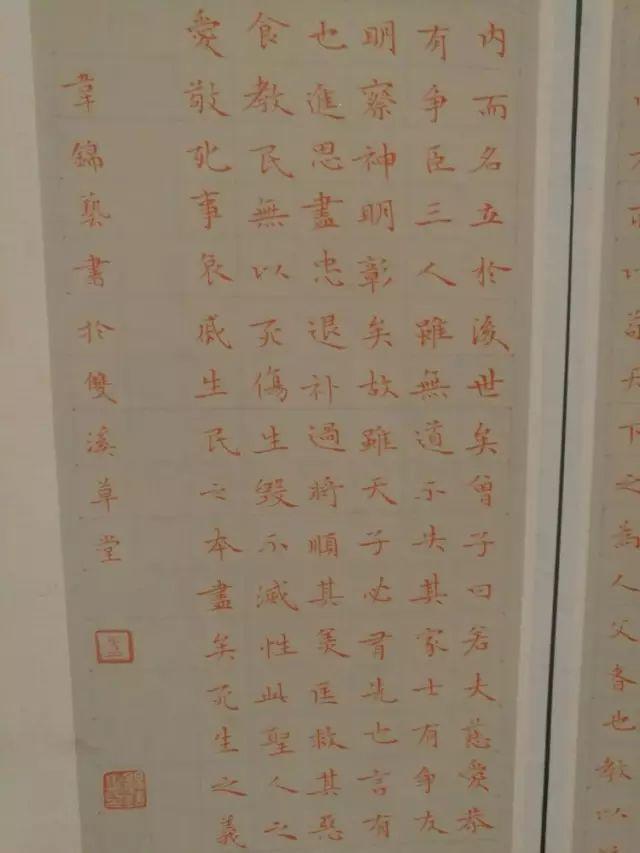 所以敬天下之為人父者也教以
内而名立於後世矣曾子曰若夫慈愛恭
有争臣三人雖無道不失其家士有争友
明察神明彰矣故雖天子必有先也言有
也進思盡忠退补過將順其美匡救其惡
食教民無以死傷生毀不滅性此聖人之
愛敬死事哀戚生民之本盡矣死生之義
韋錦藝書於雙溪草堂